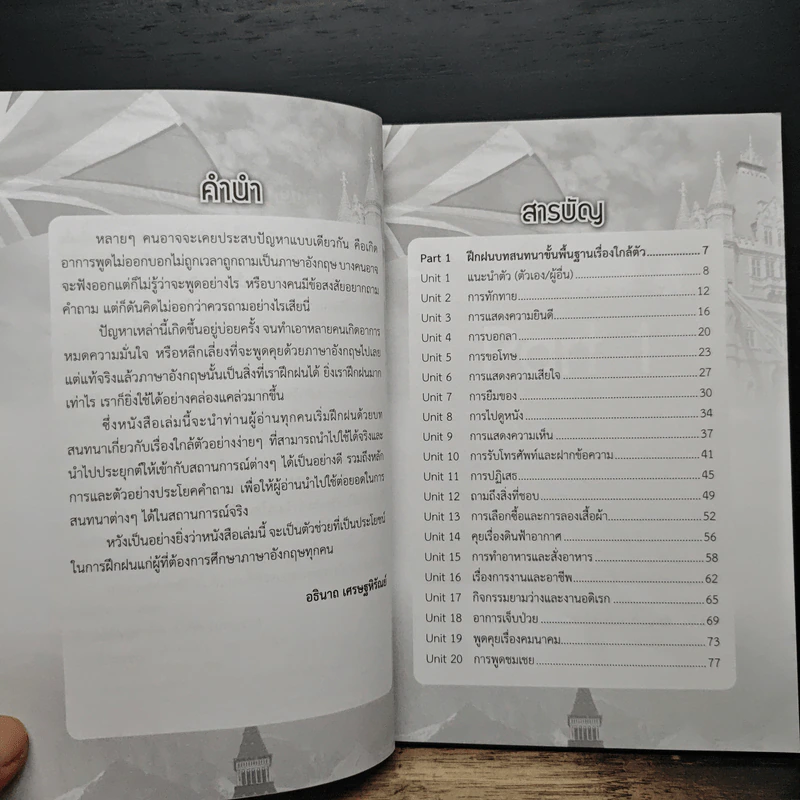 คำนำ
หลายๆ คนอาจจะเคยประสบปัญหาแบบเดียวกัน คือเกิด
อาการพูดไม่ออกบอกไม่ถูกเวลาถูกถามเป็นภาษาอังกฤษ บางคนอาจ
จะฟังออกแต่ก็ไม่รู้ว่าจะพูดอย่างไร หรือบางคนมีข้อสงสัยอยากถาม
คำถาม แต่ก็ดันคิดไม่ออกว่าควรถามอย่างไรเสียนี่
ปัญหาเหล่านี้เกิดขึ้นอยู่บ่อยครั้ง จนทำเอาหลายคนเกิดอาการ
หมดความมั่นใจ หรือหลีกเลี่ยงที่จะพูดคุยด้วยภาษาอังกฤษไปเลย
แต่แท้จริงแล้วภาษาอังกฤษนั้นเป็นสิ่งที่เราฝึกฝนได้ ยิ่งเราฝึกฝนมาก
เท่าไร เราก็ยิ่งใช้ได้อย่างคล่องแคล่วมากขึ้น
ซึ่งหนังสือเล่มนี้จะนำท่านผู้อ่านทุกคนเริ่มฝึกฝนด้วยบท
สนทนาเกี่ยวกับเรื่องใกล้ตัวอย่างง่ายๆ ที่สามารถนำไปใช้ได้จริงและ
นำไปประยุกต์ให้เข้ากับสถานการณ์ต่างๆ ได้เป็นอย่างดี รวมถึงหลัก
การและตัวอย่างประโยคคำถาม เพื่อให้ผู้อ่านนำไปใช้ต่อยอดในการ
สนทนาต่างๆ ได้ในสถานการณ์จริง
หวังเป็นอย่างยิ่งว่าหนังสือเล่มนี้ จะเป็นตัวช่วยที่เป็นประโยชน์
ในการฝึกฝนแก่ผู้ที่ต้องการศึกษาภาษาอังกฤษทุกคน
อธินาถ เศรษฐหิรัณย์
สารบัญ
Part 1 ฝึกฝนบทสนทนาขั้นพื้นฐานเรื่องใกล้ตัว.................7
Unit 1 แนะนำตัว (ตัวเอง/ผู้อื่น)................................8
Unit 2 การทักทาย................................12
Unit 3 การแสดงความยินดี................................16
Unit 4 การบอกลา................................20
Unit 5 การขอโทษ................................23
Unit 6 การแสดงความเสียใจ................................27
Unit 7 การยืมของ................................30
Unit 8 การไปดูหนัง................................34
Unit 9 การแสดงความเห็น................................37
Unit 10 การรับโทรศัพท์และฝากข้อความ................................41
Unit 11 การปฏิเสธ................................45
Unit 12 ถามถึงสิ่งที่ชอบ................................49
Unit 13 การเลือกซื้อและการลองเสื้อผ้า................................52
Unit 14 คุยเรื่องดินฟ้าอากาศ................................56
Unit 15 การทำอาหารและสั่งอาหาร................................58
Unit 16 เรื่องการงานและอาชีพ................................62
Unit 17 กิจกรรมยามว่างและงานอดิเรก................................65
Unit 18 อาการเจ็บป่วย................................69
Unit 19 พูดคุยเรื่องคมนาคม................................73
Unit 20 การพูดชมเชย................................77